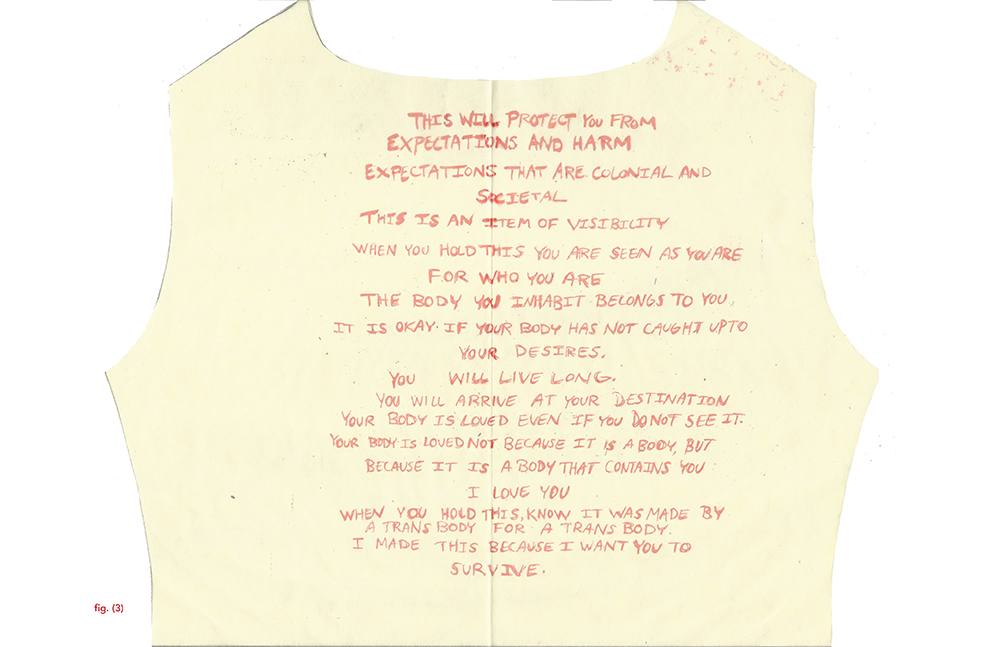 THIS WILL PROTECT YOU FROM
EXPECTATIONS AND HARM
EXPECTATIONS THAT ARE COLONIAL AND
SOCIETAL
THIS IS AN ITEM OF VISIBILITY
WHEN YOU HOLD THIS YOU ARE SEEN AS YOU ARE
FOR WHO YOU ARE
THE BODY YOU INHABIT BELONGS TO YOU.
IT IS OKAY. IF YOUR BODY HAS NOT CAUGHT UP TO
YOUR DESIRES.
YOU WILL LIVE LONG.
YOU WILL ARRIVE AT YOUR DESTINATION
YOUR BODY IS LOVED EVEN IF YOU DO NOT SEE IT.
YOUR BODY IS LOVED NOT BECAUSE IT IS A BODY, BUT
BECAUSE IT IS A BODY THAT CONTAINS YOU
I LOVE YOU
WHEN YOU HOLD THIS, KNOW IT WAS MADE BY
A TRANS BODY FOR A TRANS BODY.
I MADE THIS BECAUSE I WANT YOU TO
SURVIVE.
fig. (3)